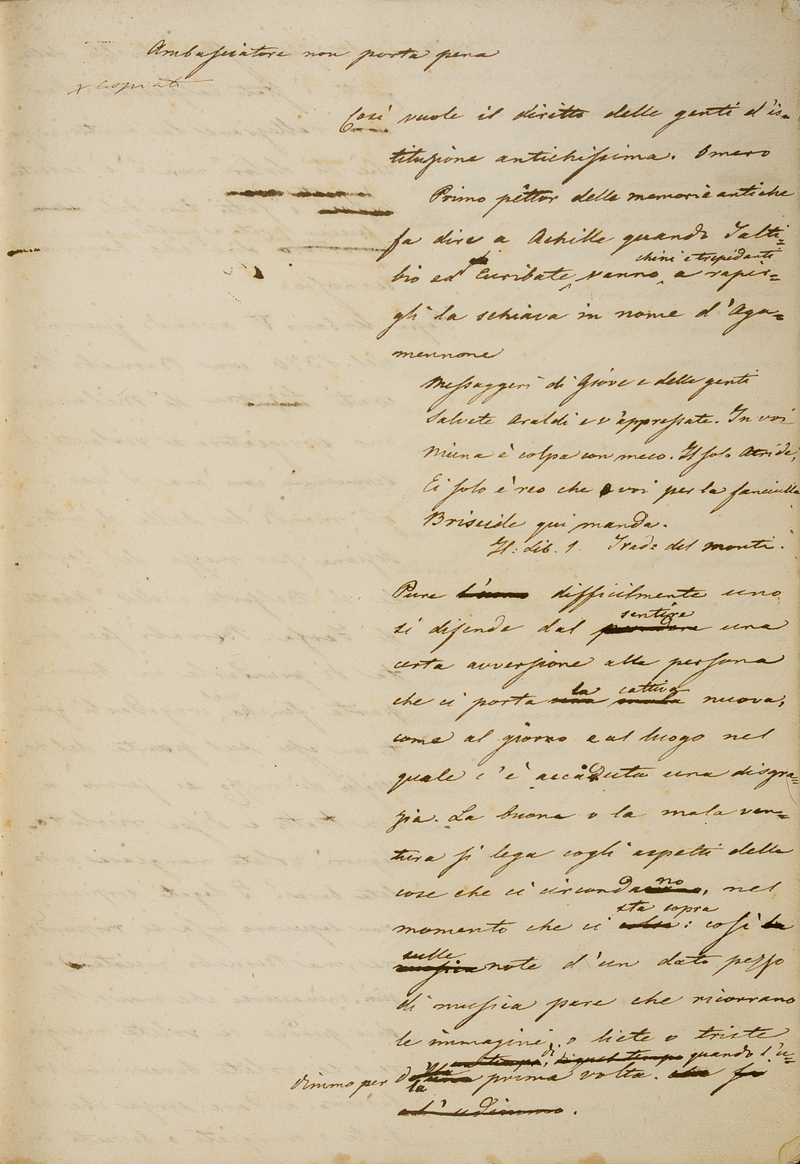 Ambasciatore non porta pena
x copiato
Così vuole il diritto delle genti d'is=
tituzione antichissima. Omero
Primo pittor delle memorie antiche
fa dire a Achille quando Talti=
bio ed Euribate, vanno, a rapir=
chini e trepidanti
gli la schiava in nome d'Aga=
mennone
Messaggeri di Giove e delle genti
Salvete Araldi e v'appressate. In voi
Niuna è colpa con meco. Il solo Atride,
Ei solo è reo che voi per la fanciulla
Briseide qui manda.
Il: Lib. 1. Trad: del Monti.
Pure difficilmente uno
si difende dal sentire una
certa avversione alla persona
che ci porta la cattiva nuova,
come al giorno e al luogo nel
quale c'è accaduta una disgra=
zia. La buona o la mala ven=
tura si lega cogli aspetti delle
cose che ci circondano, nel
momento che ci sta sopra: così
sulle note d'un dato pezzo
di musica pare che ricorrano
le immagini, o liete o triste
di quel tempo quando l'u=
dimmo per la prima volta.